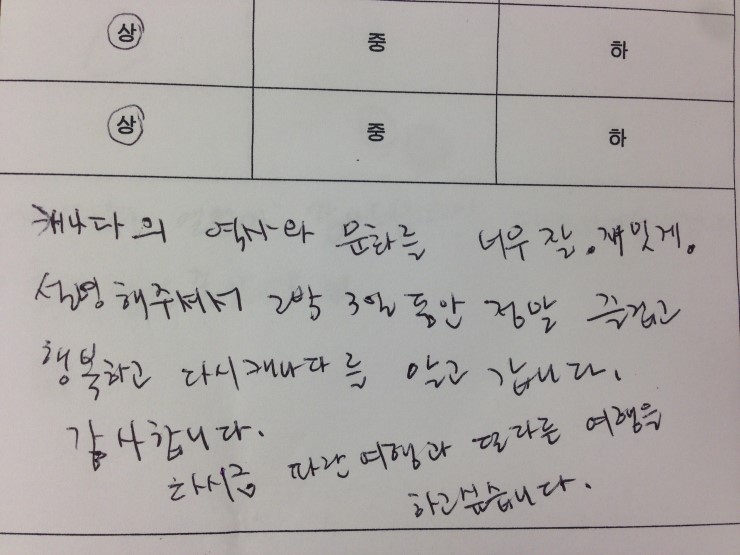 상 중 하
상 중 하
캐나다의 역사와 문화를 너무 잘. 재밌게.
설명해주셔서 2박 3일 동안 정말 즐겁고
행복하고 다시 캐나다를 알고 갑니다.
감사합니다.
다시금 파란여행과 또다른 여행을
하고싶습니다.